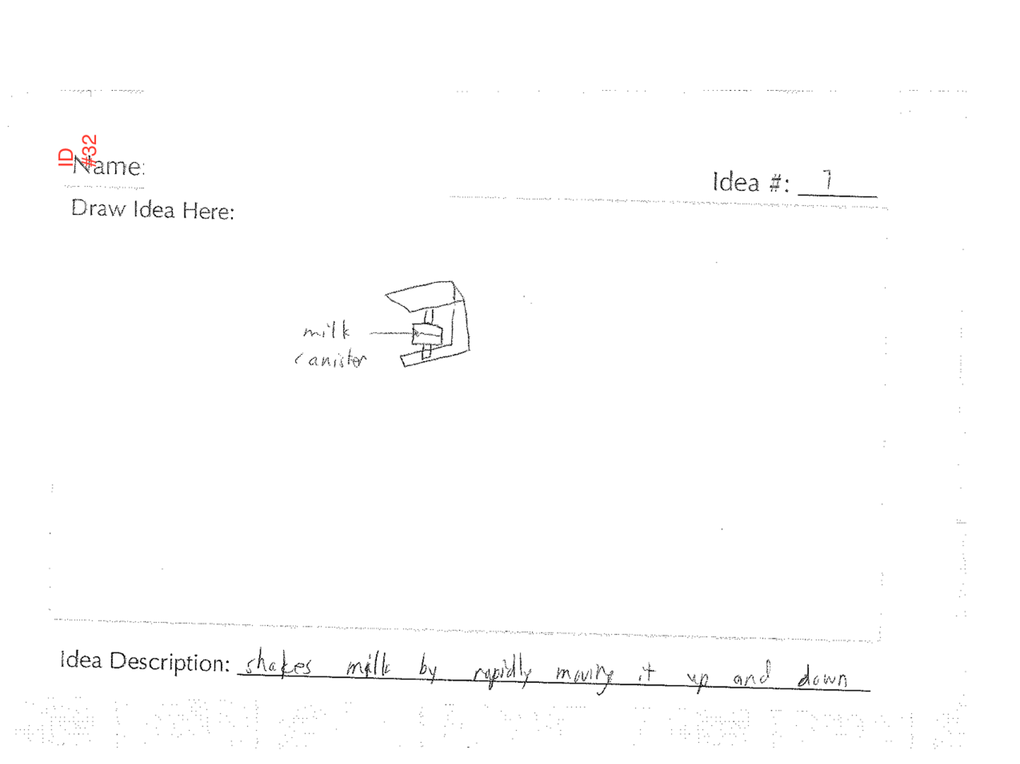 ID
#32
Name:
Idea #: 7
Draw Idea Here:
milk
canister
Idea Description: shakes milk by rapidly moving it up and down